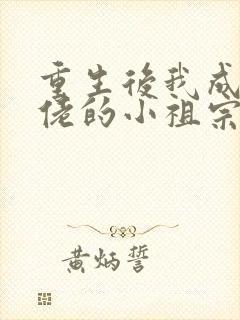 重生後我成
佬的小祖宗
黄炳誓